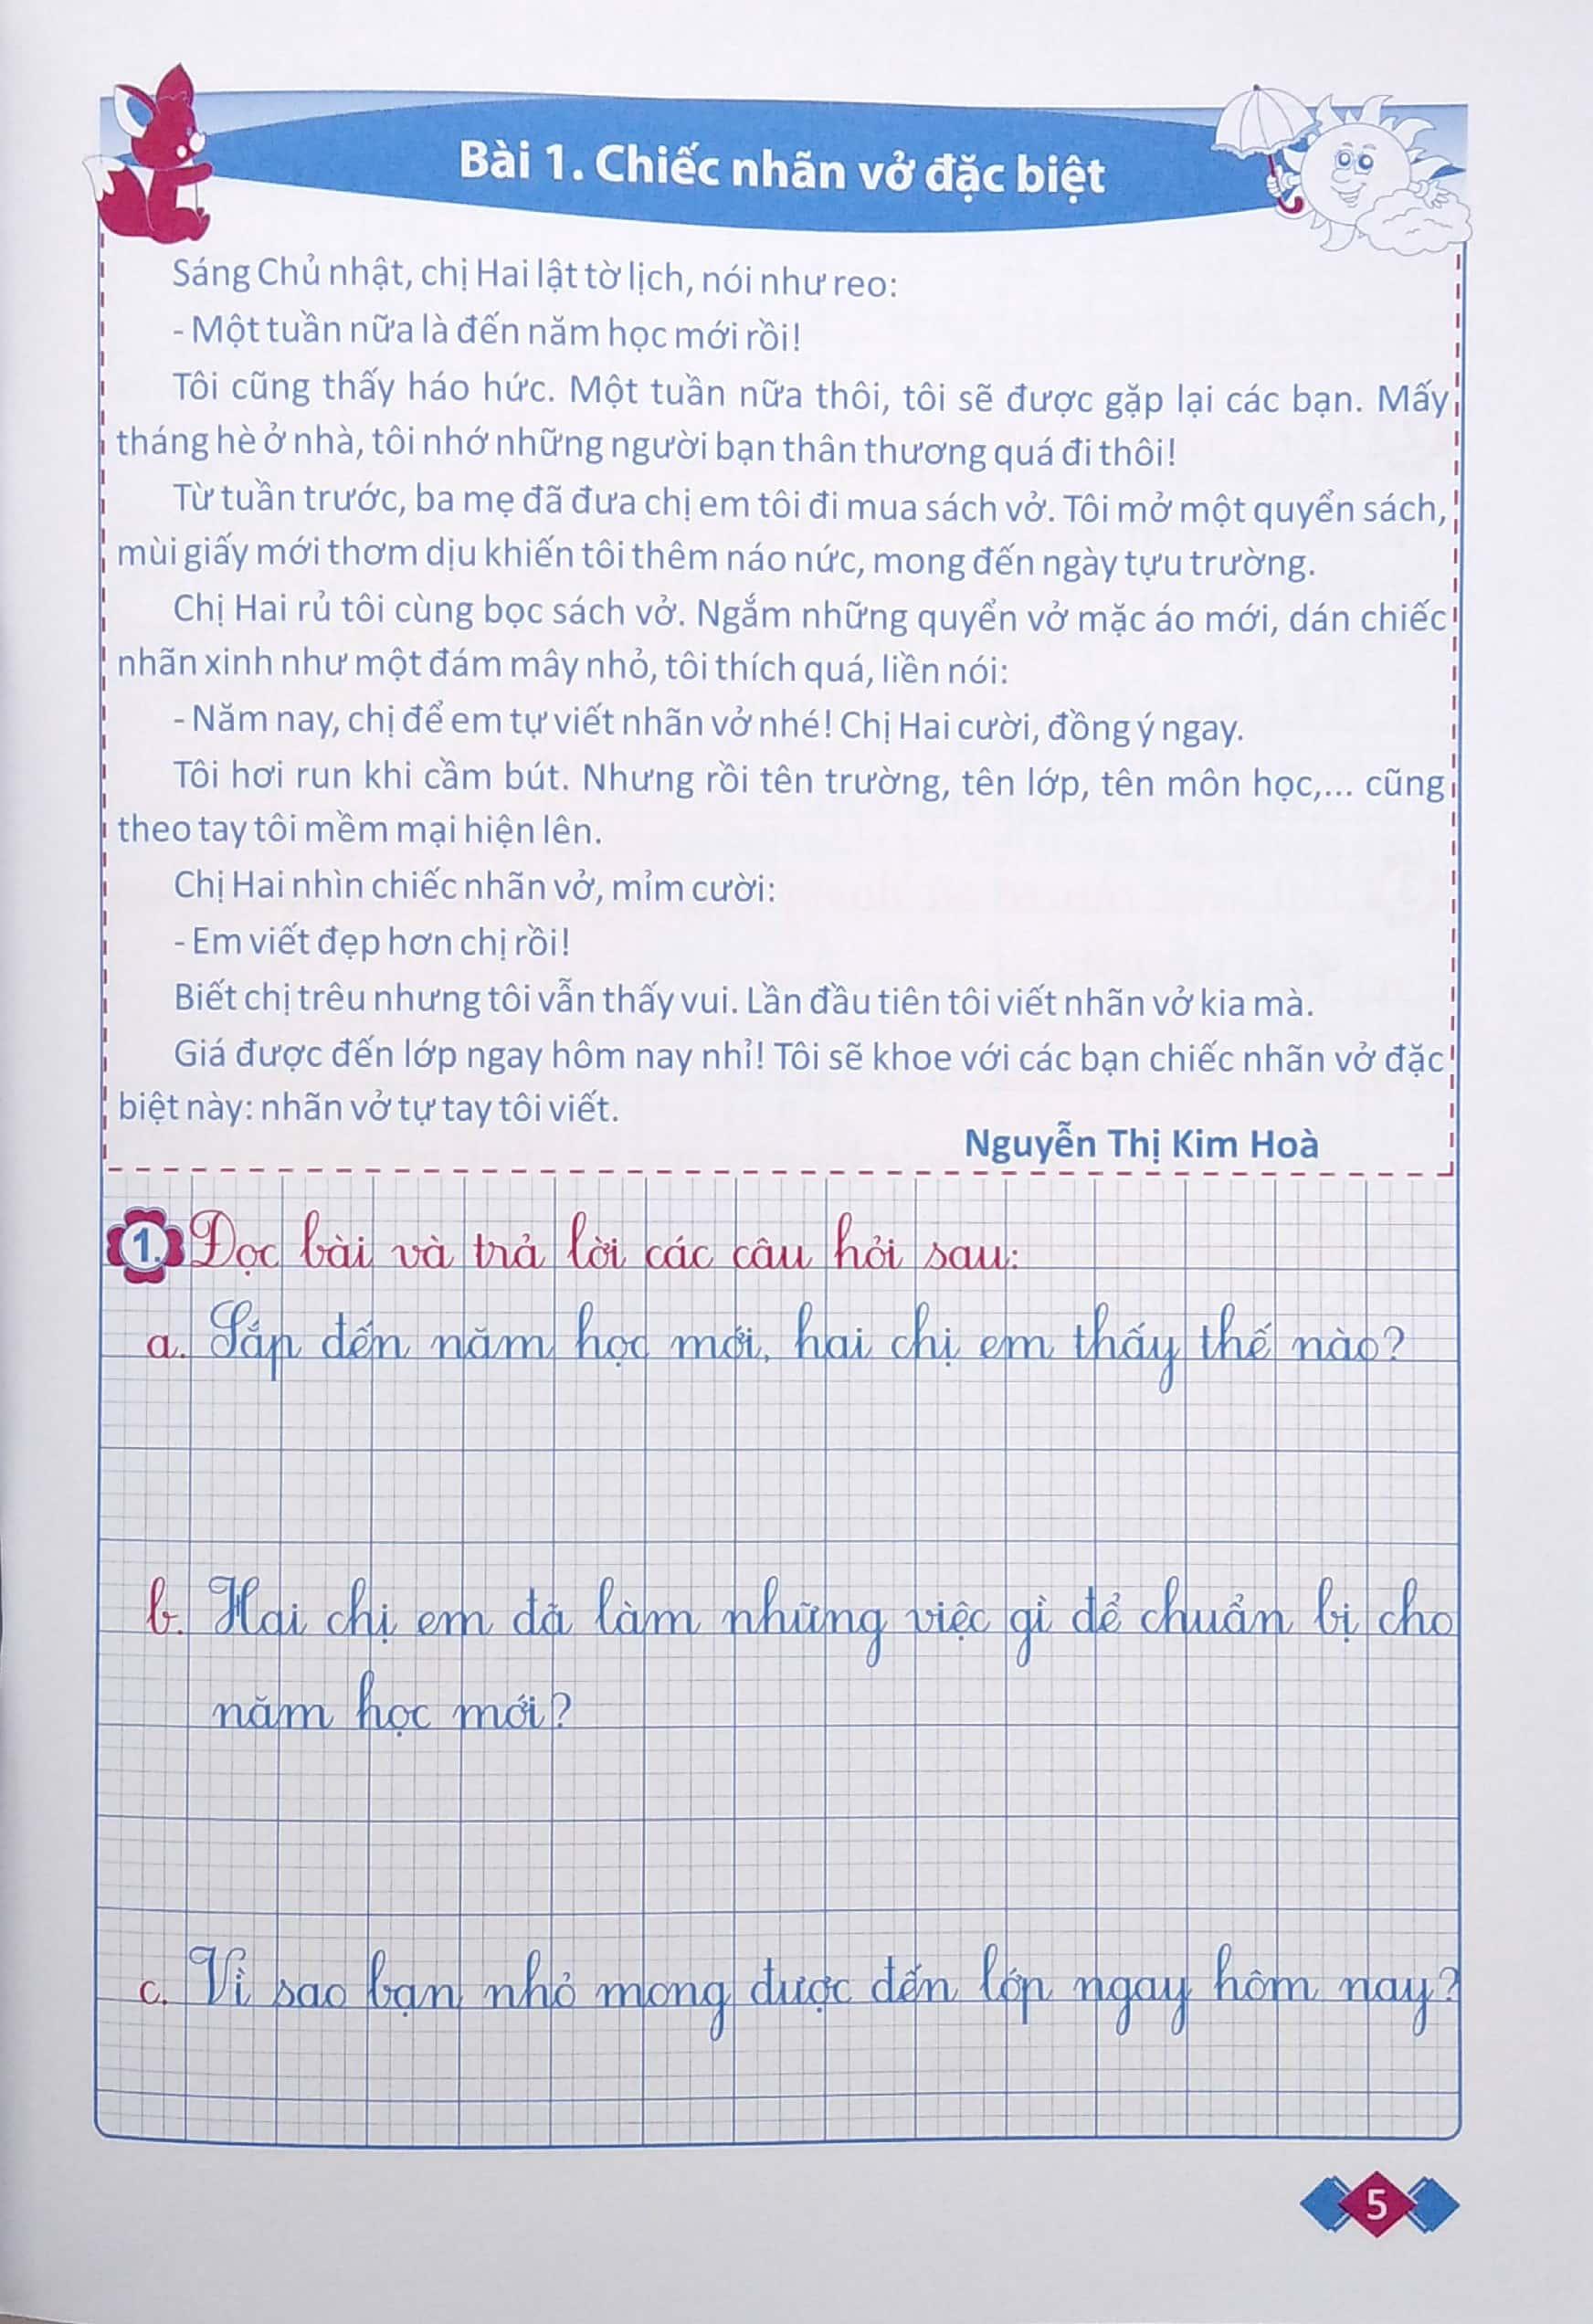 Bài 1. Chiếc nhãn vở đặc biệt
Sáng Chủ nhật, chị Hai lật tờ lịch, nói như reo:
- Một tuần nữa là đến năm học mới rồi!
Tôi cũng thấy háo hức. Một tuần nữa thôi, tôi sẽ được gặp lại các bạn. Mấy
tháng hè ở nhà, tôi nhớ những người bạn thân thương quá đi thôi!
Từ tuần trước, ba mẹ đã đưa chị em tôi đi mua sách vở. Tôi mở một quyển sách,
mùi giấy mới thơm dịu khiến tôi thêm náo nức, mong đến ngày tựu trường.
Chị Hai rủ tôi cùng bọc sách vở. Ngắm những quyển vở mặc áo mới, dán chiếc
nhãn xinh như một đám mây nhỏ, tôi thích quá, liền nói:
- Năm nay, chị để em tự viết nhãn vở nhé! Chị Hai cười, đồng ý ngay.
Tôi hơi run khi cầm bút. Nhưng rồi tên trường, tên lớp, tên môn học,... cũng
theo tay tôi mềm mại hiện lên.
Chị Hai nhìn chiếc nhãn vở, mỉm cười:
- Em viết đẹp hơn chị rồi!
Biết chị trêu nhưng tôi vẫn thấy vui. Lần đầu tiên tôi viết nhãn vở kia mà.
Giá được đến lớp ngay hôm nay nhỉ! Tôi sẽ khoe với các bạn chiếc nhãn vở đặc
biệt này: nhãn vở tự tay tôi viết.
Nguyễn Thị Kim Hoà
1. Đọc bài và trả lời các câu hỏi sau:
a. Sắp đến năm học mới, hai chị em thấy thế nào?
b. Hai chị em đã làm những việc gì để chuẩn bị cho
năm học mới?
c. Vì sao bạn nhỏ mong được đến lớp ngay hôm nay?
5